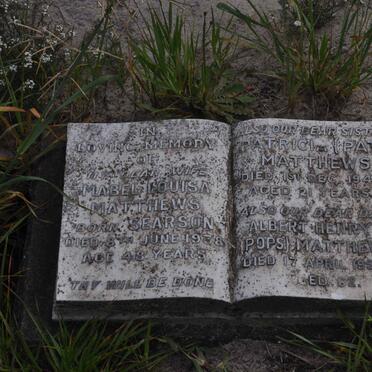 IN
LOVING MEMORY
OF
MABEL LOUISA
MATTHEWS
BORN SEARSON
DIED 8TH JUNE 1928
AGED 48 YEARS
THY WILL BE DONE
ALSO OUR DEAR SISTER
PATRICIA (PAT)
MATTHEWS
DIED
AGED 21 YEARS
ALSO OUR DEAR
ALBERT HENRY
(POPS) MATTHEWS
DIED APRIL
AGED 62